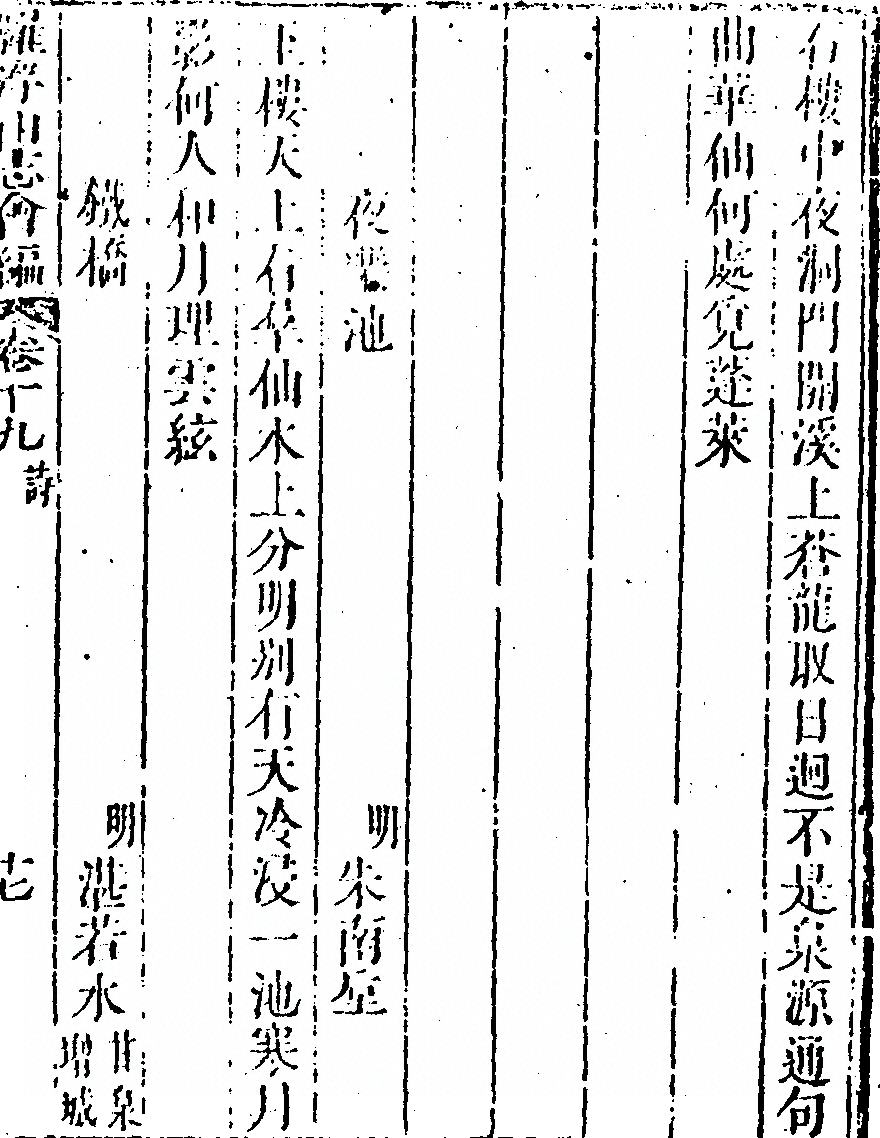 石樓中夜洞門開溪上蒼龍取日迴不是泉源通句
曲華仙何處覓蓬萊
夜樂池
明 朱南星
上樓天上有華仙水上分明別有天冷浸一池寒月
影何人和月理雲絃
鐵橋
明 湛若水 甘泉 增城
羅浮山志會編 卷十九 詩 十七